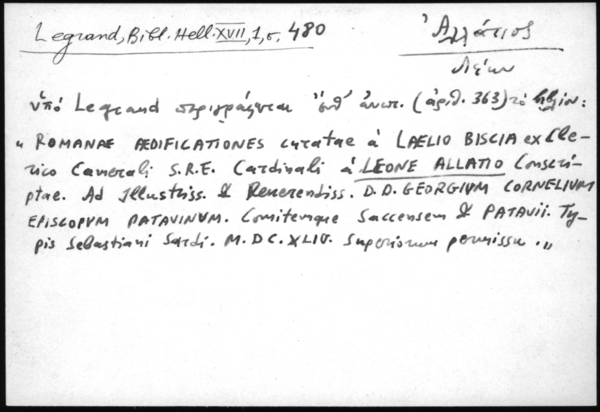 Legrand, Bibl. Hell. XVII, 1, σ. 480
Ἀλλάτιος
Λέων
ὑπὸ Legrand περιγράφεται (ἀριθ. 363) τὸ
"ROMANAE ÆDIFICATIONES curatae à LAELIO BISCIA ex Cle-
rico Camerali S.R.E. Cardinali à LEONE ALLATIO Conscri-
ptae. Ad Illustriss. & Reverendiss. D.D. GEORGIVM CORNELIVM
EPISCOPVM PATAVINVM. Comitemque Saccensem & PATAVII. Ty-
pis Sebastiani Sardi. M.DC.XLIV. Superiorum permissu."